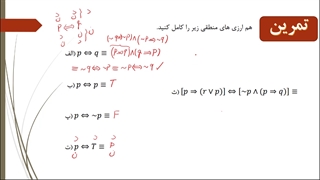 تمرین
هم ارزی های منطقی زیر را کامل کنید.
الف) p ⇔ q ≡ (p⇒q) ∧ (q⇒p)
(~q⇒~p) ∧ (~p⇒~q)
≡ ~q ⇔ ~p ≡ ~p ⇔ ~q ✓
ب) p ⇔ p ≡ T
پ) p ⇔ ~p ≡ F
ت) p ⇔ T ≡ p
ث) [p ⇒ (r ∨ p)] ⇔ [~p ∧ (p ⇒ q)] ≡
p ⇔ q